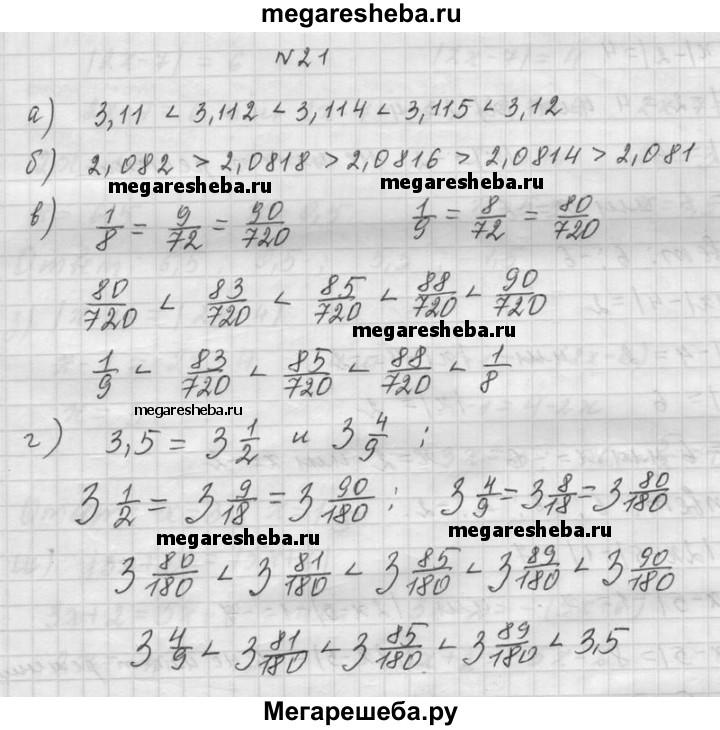 megaresheba.ru
№21
а) 3,11 < 3,112 < 3,114 < 3,115 < 3,12
б) 2,082 > 2,0818 > 2,0816 > 2,0814 > 2,081
megaresheba.ru megaresheba.ru
в) 1/8 = 9/72 = 90/720 1/9 = 8/72 = 80/720
80/720 < 83/720 < 85/720 < 88/720 < 90/720
megaresheba.ru
1/9 < 83/720 < 85/720 < 88/720 < 1/8
megaresheba.ru
г) 3,5 = 3 1/2 и 3 4/9 ;
3 1/2 = 3 9/18 = 3 90/180 ; 3 4/9 = 3 8/18 = 3 80/180
megaresheba.ru megaresheba.ru
3 80/180 < 3 81/180 < 3 85/180 < 3 89/180 < 3 90/180
3 4/9 < 3 81/180 < 3 85/180 < 3 89/180 < 3,5
Мегарешеба.ру